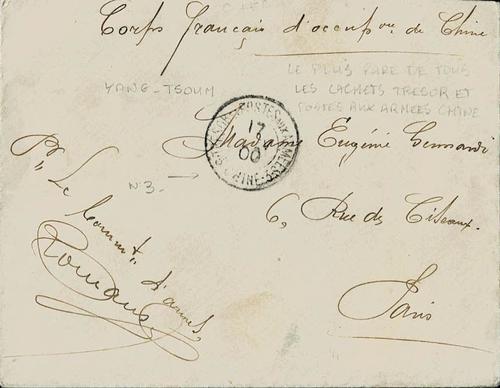 Corps français d'occup^on de Chine
LE PLUS RARE DE TOUS
YANG-TSOUM
LES CACHETS TRESOR ET
POSTES AUX ARMEES CHINE
TRESOR ET POSTES AUX ARMEES CHINE
17
00
Madame Eugénie
N 3. →
6, Rue de Ciseaux.
P^r Le Comm^t d'armes,
Paris